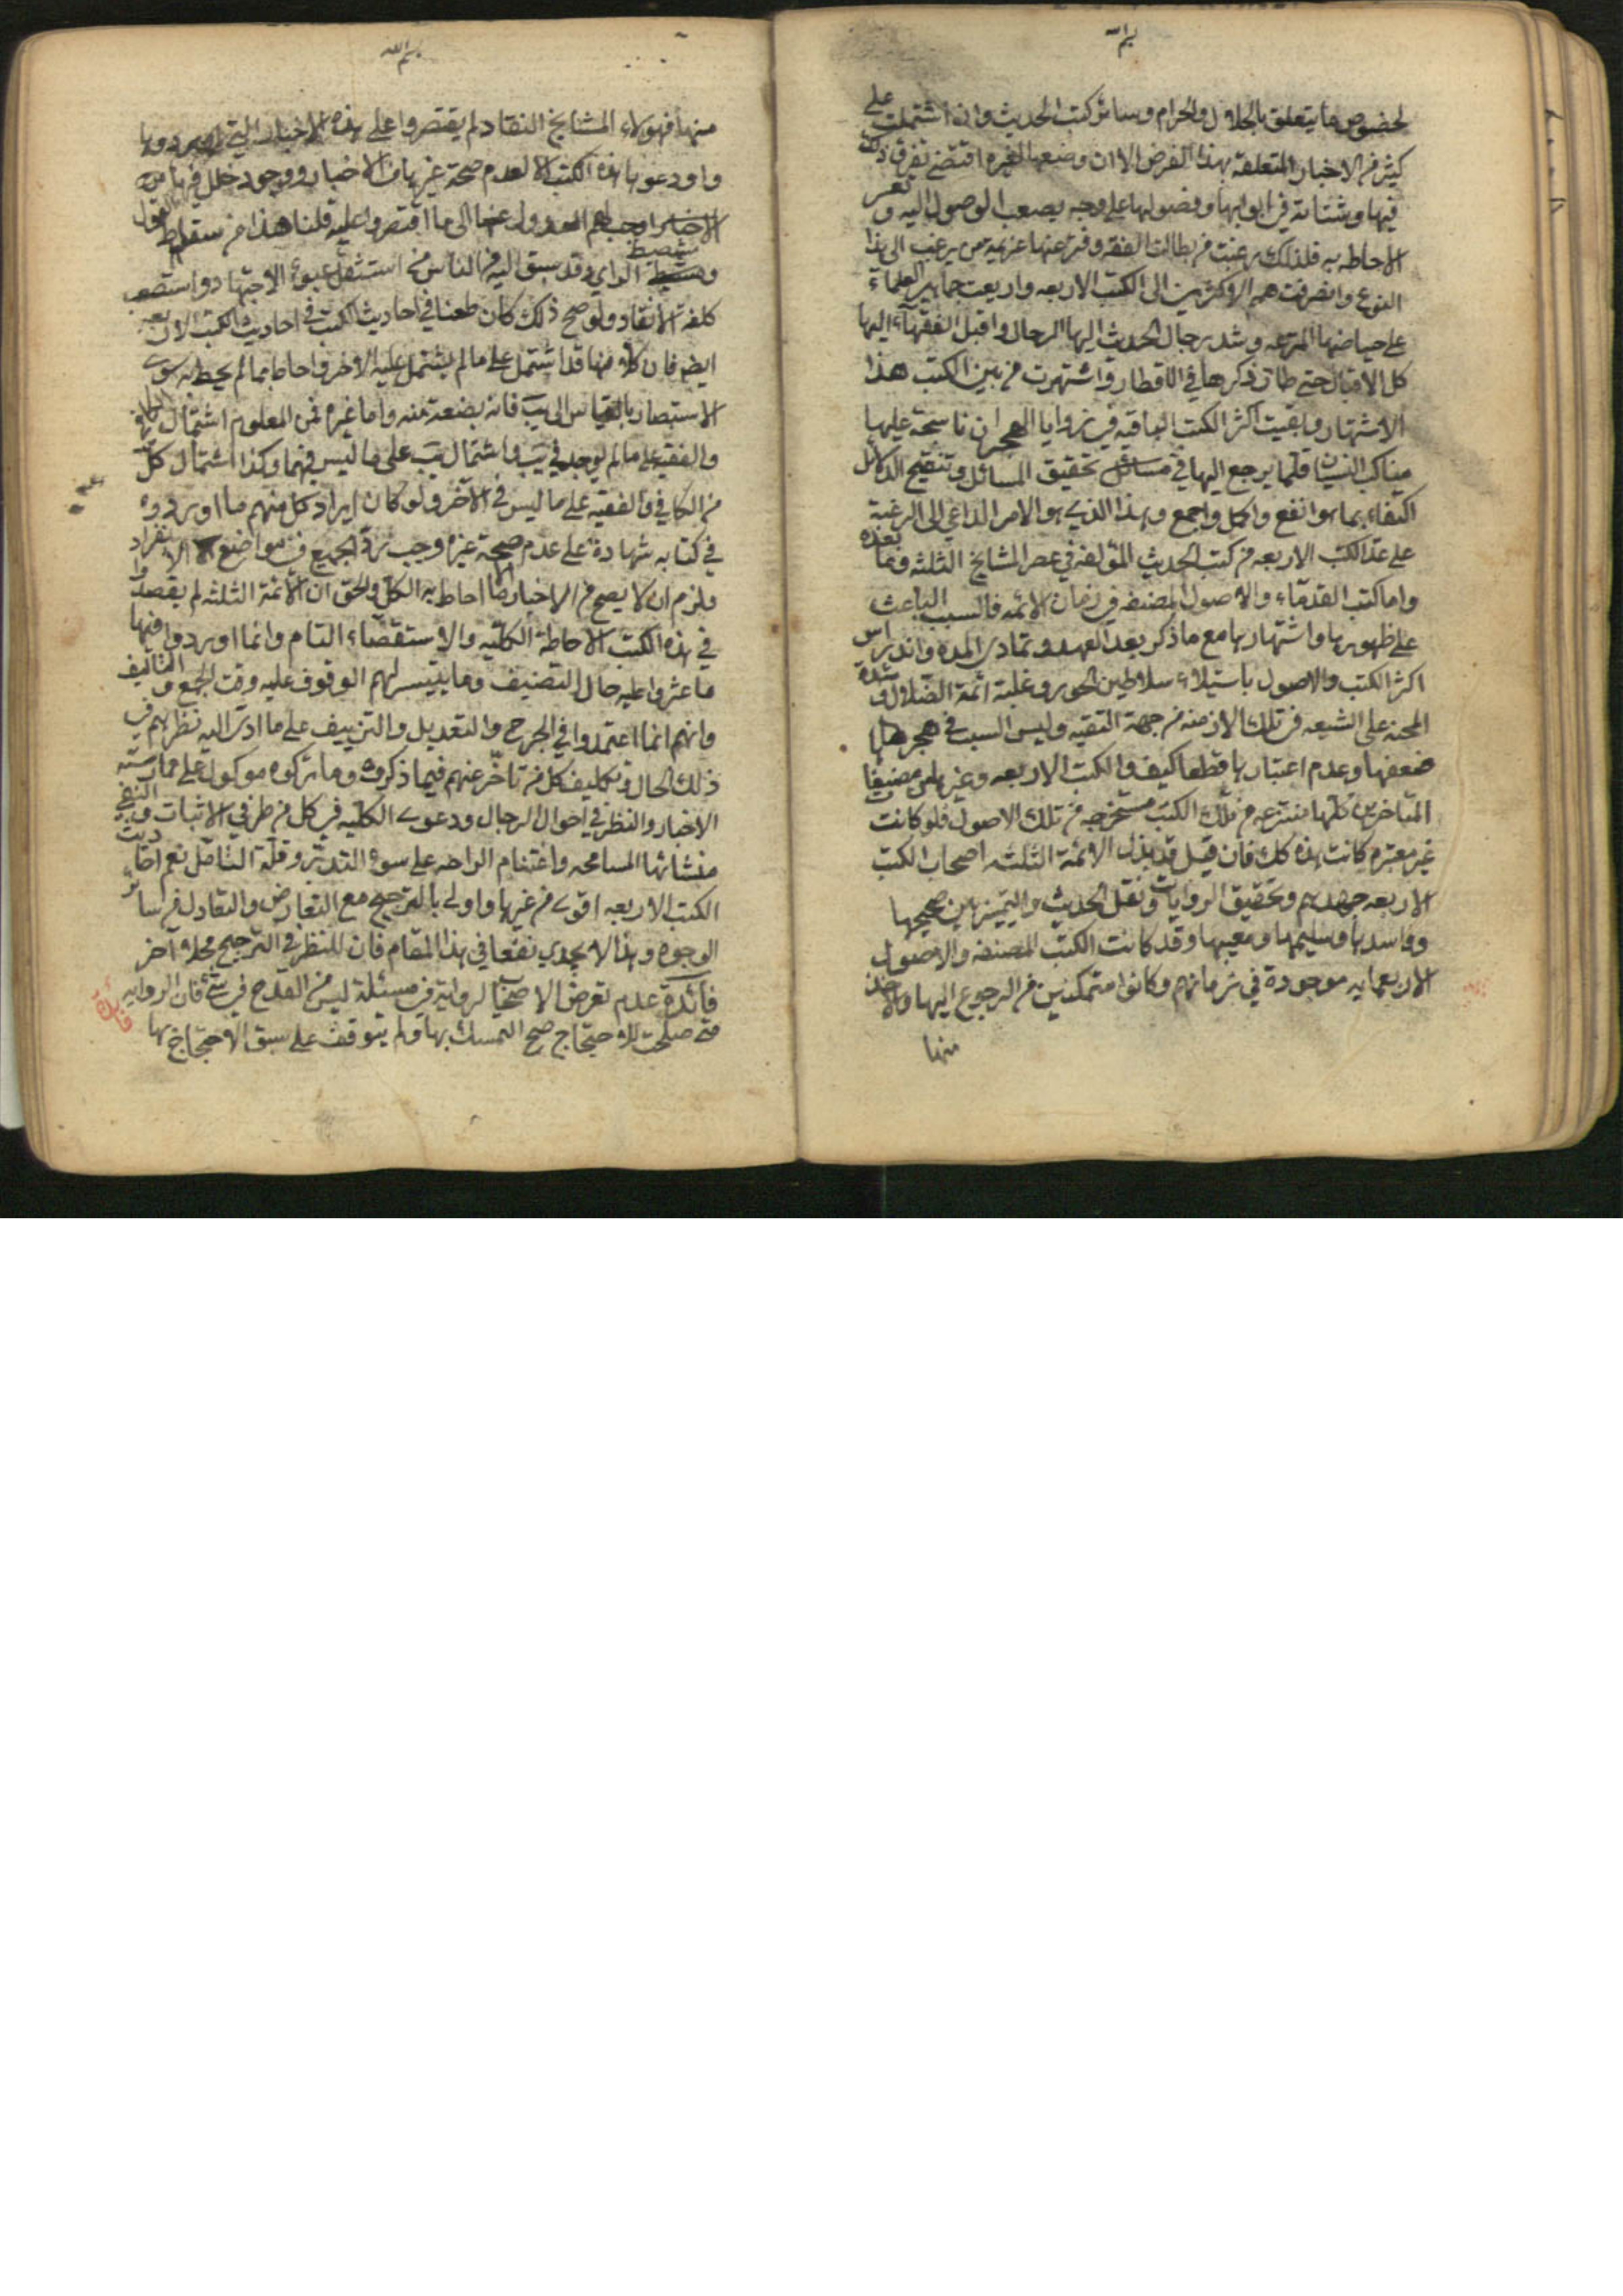 بسم الله
لخصوص ما يتعلق بالحلال والحرام وسائر كتب الحديث وان اشتملت على
كثير من الاخبار المتعلقة بهذا الغرض الا ان وضعها لغيره اقتضى تفرق ذلك
فيها وشتاته في ابوابها وفصولها على وجه يصعب الوصول اليه و تعسر
الاحاطه به فلذلك رغبت طالب الفقه و عنها عزيمة من يرغب الى هذا
النوع وانصرفت همم الاكثرين الى الكتب الاربعه جماهير العلماء
على حياضها المترعه وشد رجال الحديث اليها الرحال واقبل الفقهاء اليها
كل الاقبال حتى طار ذكرها في الاقطار واشتهرت من بين الكتب هذا
الاشتهار وبقيت اكثر الكتب الباقيه في زوايا الهجران ناسجة عليها
عناكب النسيان قلما يرجع اليها في تحقيق المسائل وتنقيح الدلائل
اكتفاء بما هو انفع واكمل واجمع وهذا الذي هو الامر الداعي الى الرغبة
على عدا الكتب الاربعه من كتب الحديث المؤلفه في عصر المشايخ الثلثه وما بعده
واما كتب القدماء والاصول المصنفه في زمان الائمه فالسبب الباعث
على ظهورها واشتهارها مع ما ذكر بعد العهد وتمادى المدة واندراس
اكثر الكتب والاصول باستيلاء سلاطين الجور وغلبة ائمة الضلال و شدة
المحنه على الشيعه في تلك الازمنه من جهة التقيه وليس السبب في هجرها
ضعفها وعدم اعتبارها قطعا كيف والكتب الاربعه وغيرها من مصنفات
المتاخرين كلها منتزعه من تلك الكتب مستخرجه من تلك الاصول فلو كانت
غير معتبره كانت هذه كك فان قيل قد بذل الائمة الثلثه اصحاب الكتب
الاربعه جهدهم وتحقيق الروايات ونقل الحديث والتمييز بين صحيحها
وفاسدها وسليمها ومعيبها وقد كانت الكتب المصنفه والاصول
الاربعمايه موجودة في زمانهم وكانوا متمكنين من الرجوع اليها والاخذ
منها
بسم الله
منها فهؤلاء المشايخ النقاد لم يقتصروا على هذه الاخبار التي اوردوها
واودعوها هذه الكتب الا لعدم صحة غيرها من الاخبار ووجود خلل فيها من
الاخبار اوجب لهم العدول عنها الى ما اقتصروا عليه قلنا هذا من سقاط القول
و الراي وقد سبق اليه من الناس من استثقل عبوء الاجتهاد واستصعب
كلفة الانتقاد ولو صح ذلك كان طعنا في احاديث الكتب في احاديث الكتب الاربعه
ايضا فان كلا منها قد اشتمل على ما لم يشتمل عليه الاخر واحاط بما لم يحط به سوى
الاستبصار بالقياس الى يب فانه بضعة منه واما غيره فمن المعلوم اشتمال الكافي
والفقيه على ما لم يوجد في يب واشتمال يب على ما ليس فيهما وكذا اشتمال كل
من الكافي والفقيه على ما ليس في الاخر ولو كان ايراد كل منهم ما اورده
في كتابه شهادة على عدم صحة غيره لوجب رد الجميع في مواضع الانفراد
ولزم ان لا يصح من الاخبار الا ما احاط به الكل والحق ان الائمة الثلثه لم يقصدوا
في هذه الكتب الاحاطة الكليه والاستقصاء التام وانما اوردوا فيها
ما عثروا عليه حال التصنيف وما تيسر لهم الوقوف عليه وقت الجمع و التاليف
وانهم انما اعتمدوا في الجرح والتعديل والتزييف على ما ادى اليه نظرهم في
ذلك الحال وتكليف كل من تاخر عنهم فيما ذكروه وما تركوه موكول على ممارسته
الاخبار والنظر في احوال الرجال ودعوى الكليه في كل من طرفي الاثبات و النفي
منشائها المسامحه واغتنام الراحه على سوء التدبر وقلة التامل نعم احاديث
الكتب الاربعه اقوى من غيرها واولى بالترجيح مع التعارض والتعادل في سائر
الوجوه وهذا لا يجدي نفعا في هذا المقام فان للنظر في الترجيح محلا اخر
فائدة عدم تعرض الاصحاب لرواية في مسئلة ليس من القدح في شئ فان الروايه
متى صلحت للاحتجاج صح التمسك بها ولم يتوقف على سبق الاحتجاج بها
فائدة